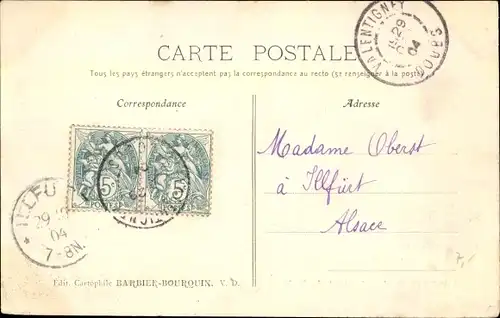 CARTE POSTALE
Tous les pays étrangers n'acceptent pas la correspondance au recto (se renseigner à la poste)
Correspondance
Adresse
VALENTIGNEY
DOUBS
29
04
5
5
POSTES
Madame Oberst
à Illfürt
Alsace
ILLFU
29
04
7-8N.
7,-
Edit. Cartophile BARBIER-BOURQUIN, V. D.